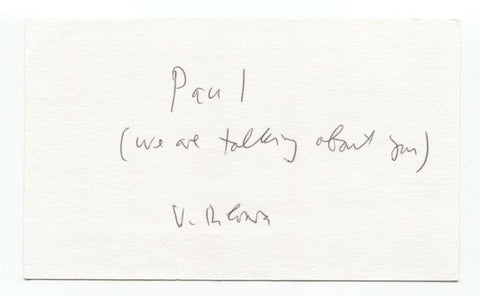 Paul
(we are talking about you)
V.